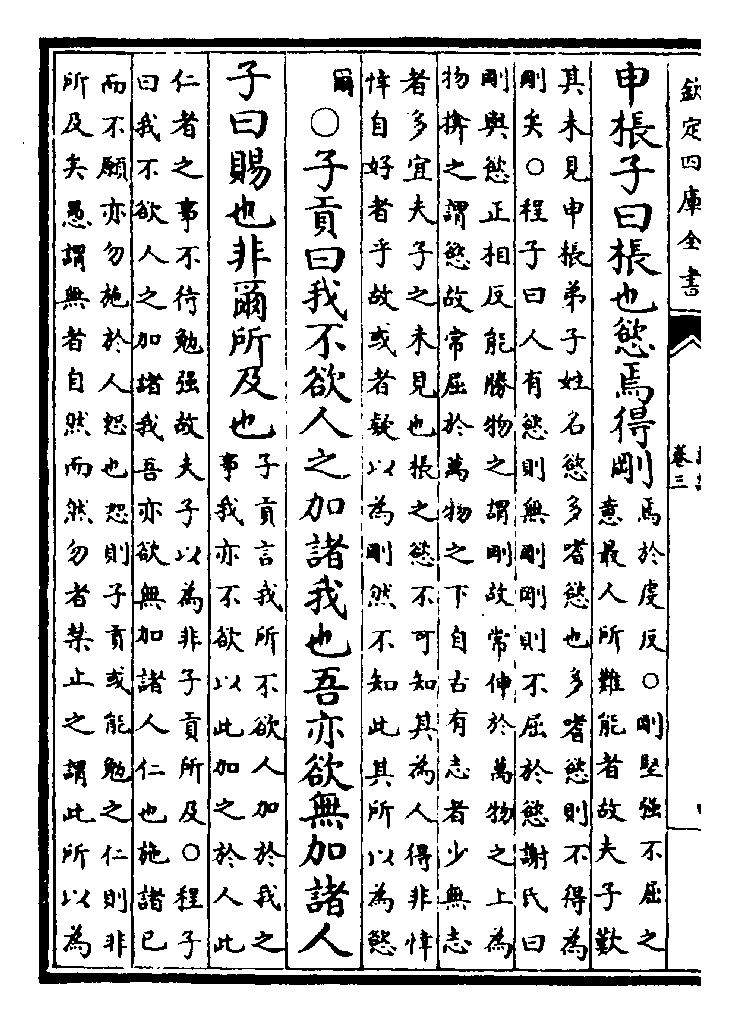 欽定四庫全書
卷三
申棖子曰棖也慾焉得剛
焉於虔反○剛堅强不屈之
意最人所難能者故夫子歎
其未見申棖弟子姓名慾多嗜慾也多嗜慾則不得為
剛矣○程子曰人有慾則無剛剛則不屈於慾謝氏曰
剛與慾正相反能勝物之謂剛故常伸於萬物之上為
物揜之謂慾故常屈於萬物之下自古有志者少無志
者多宜夫子之未見也棖之慾不可知其為人得非悻
悻自好者乎故或者疑以為剛然不知此其所以為慾
爾○子貢曰我不欲人之加諸我也吾亦欲無加諸人
子曰賜也非爾所及也
子貢言我所不欲人加於我之
事我亦不欲以此加之於人此
仁者之事不待勉强故夫子以為非子貢所及○程子
曰我不欲人之加諸我吾亦欲無加諸人仁也施諸已
而不願亦勿施於人恕也恕則子貢或能勉之仁則非
所及矣愚謂無者自然而然勿者禁止之謂此所以為